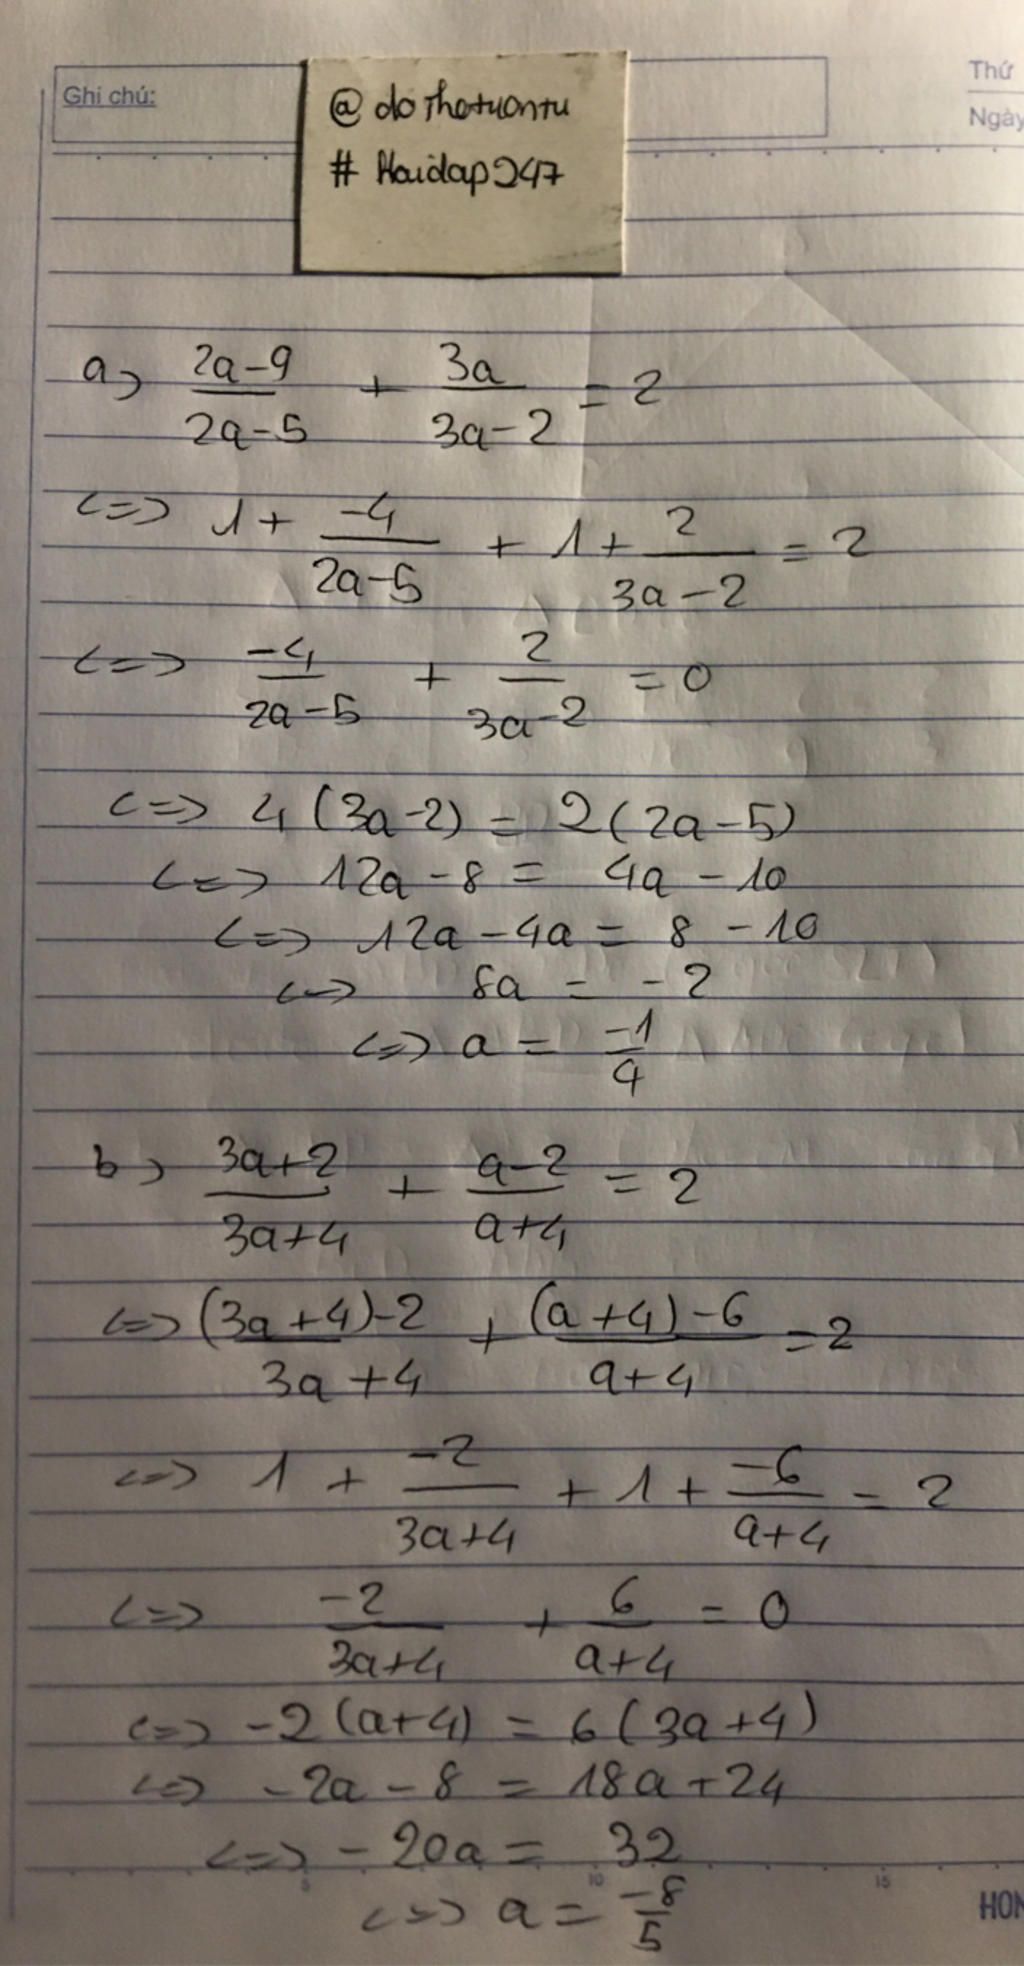 Ghi chú:
Thứ
Ngày
@ dothatuantu
# Hoidap247
a) (2a-9)/(2a-5) + 3a/(3a-2) = 2
<=> 1 + (-4)/(2a-5) + 1 + 2/(3a-2) = 2
<=> (-4)/(2a-5) + 2/(3a-2) = 0
<=> 4(3a-2) = 2(2a-5)
<=> 12a-8 = 4a-10
<=> 12a-4a = 8-10
<=> 8a = -2
<=> a = -1/4
b) (3a+2)/(3a+4) + (a-2)/(a+4) = 2
<=> ((3a+4)-2)/(3a+4) + ((a+4)-6)/(a+4) = 2
<=> 1 + (-2)/(3a+4) + 1 + (-6)/(a+4) = 2
<=> (-2)/(3a+4) + 6/(a+4) = 0
<=> -2(a+4) = 6(3a+4)
<=> -2a-8 = 18a+24
<=> -20a = 32
5 10 15
<=> a = -8/5
HON